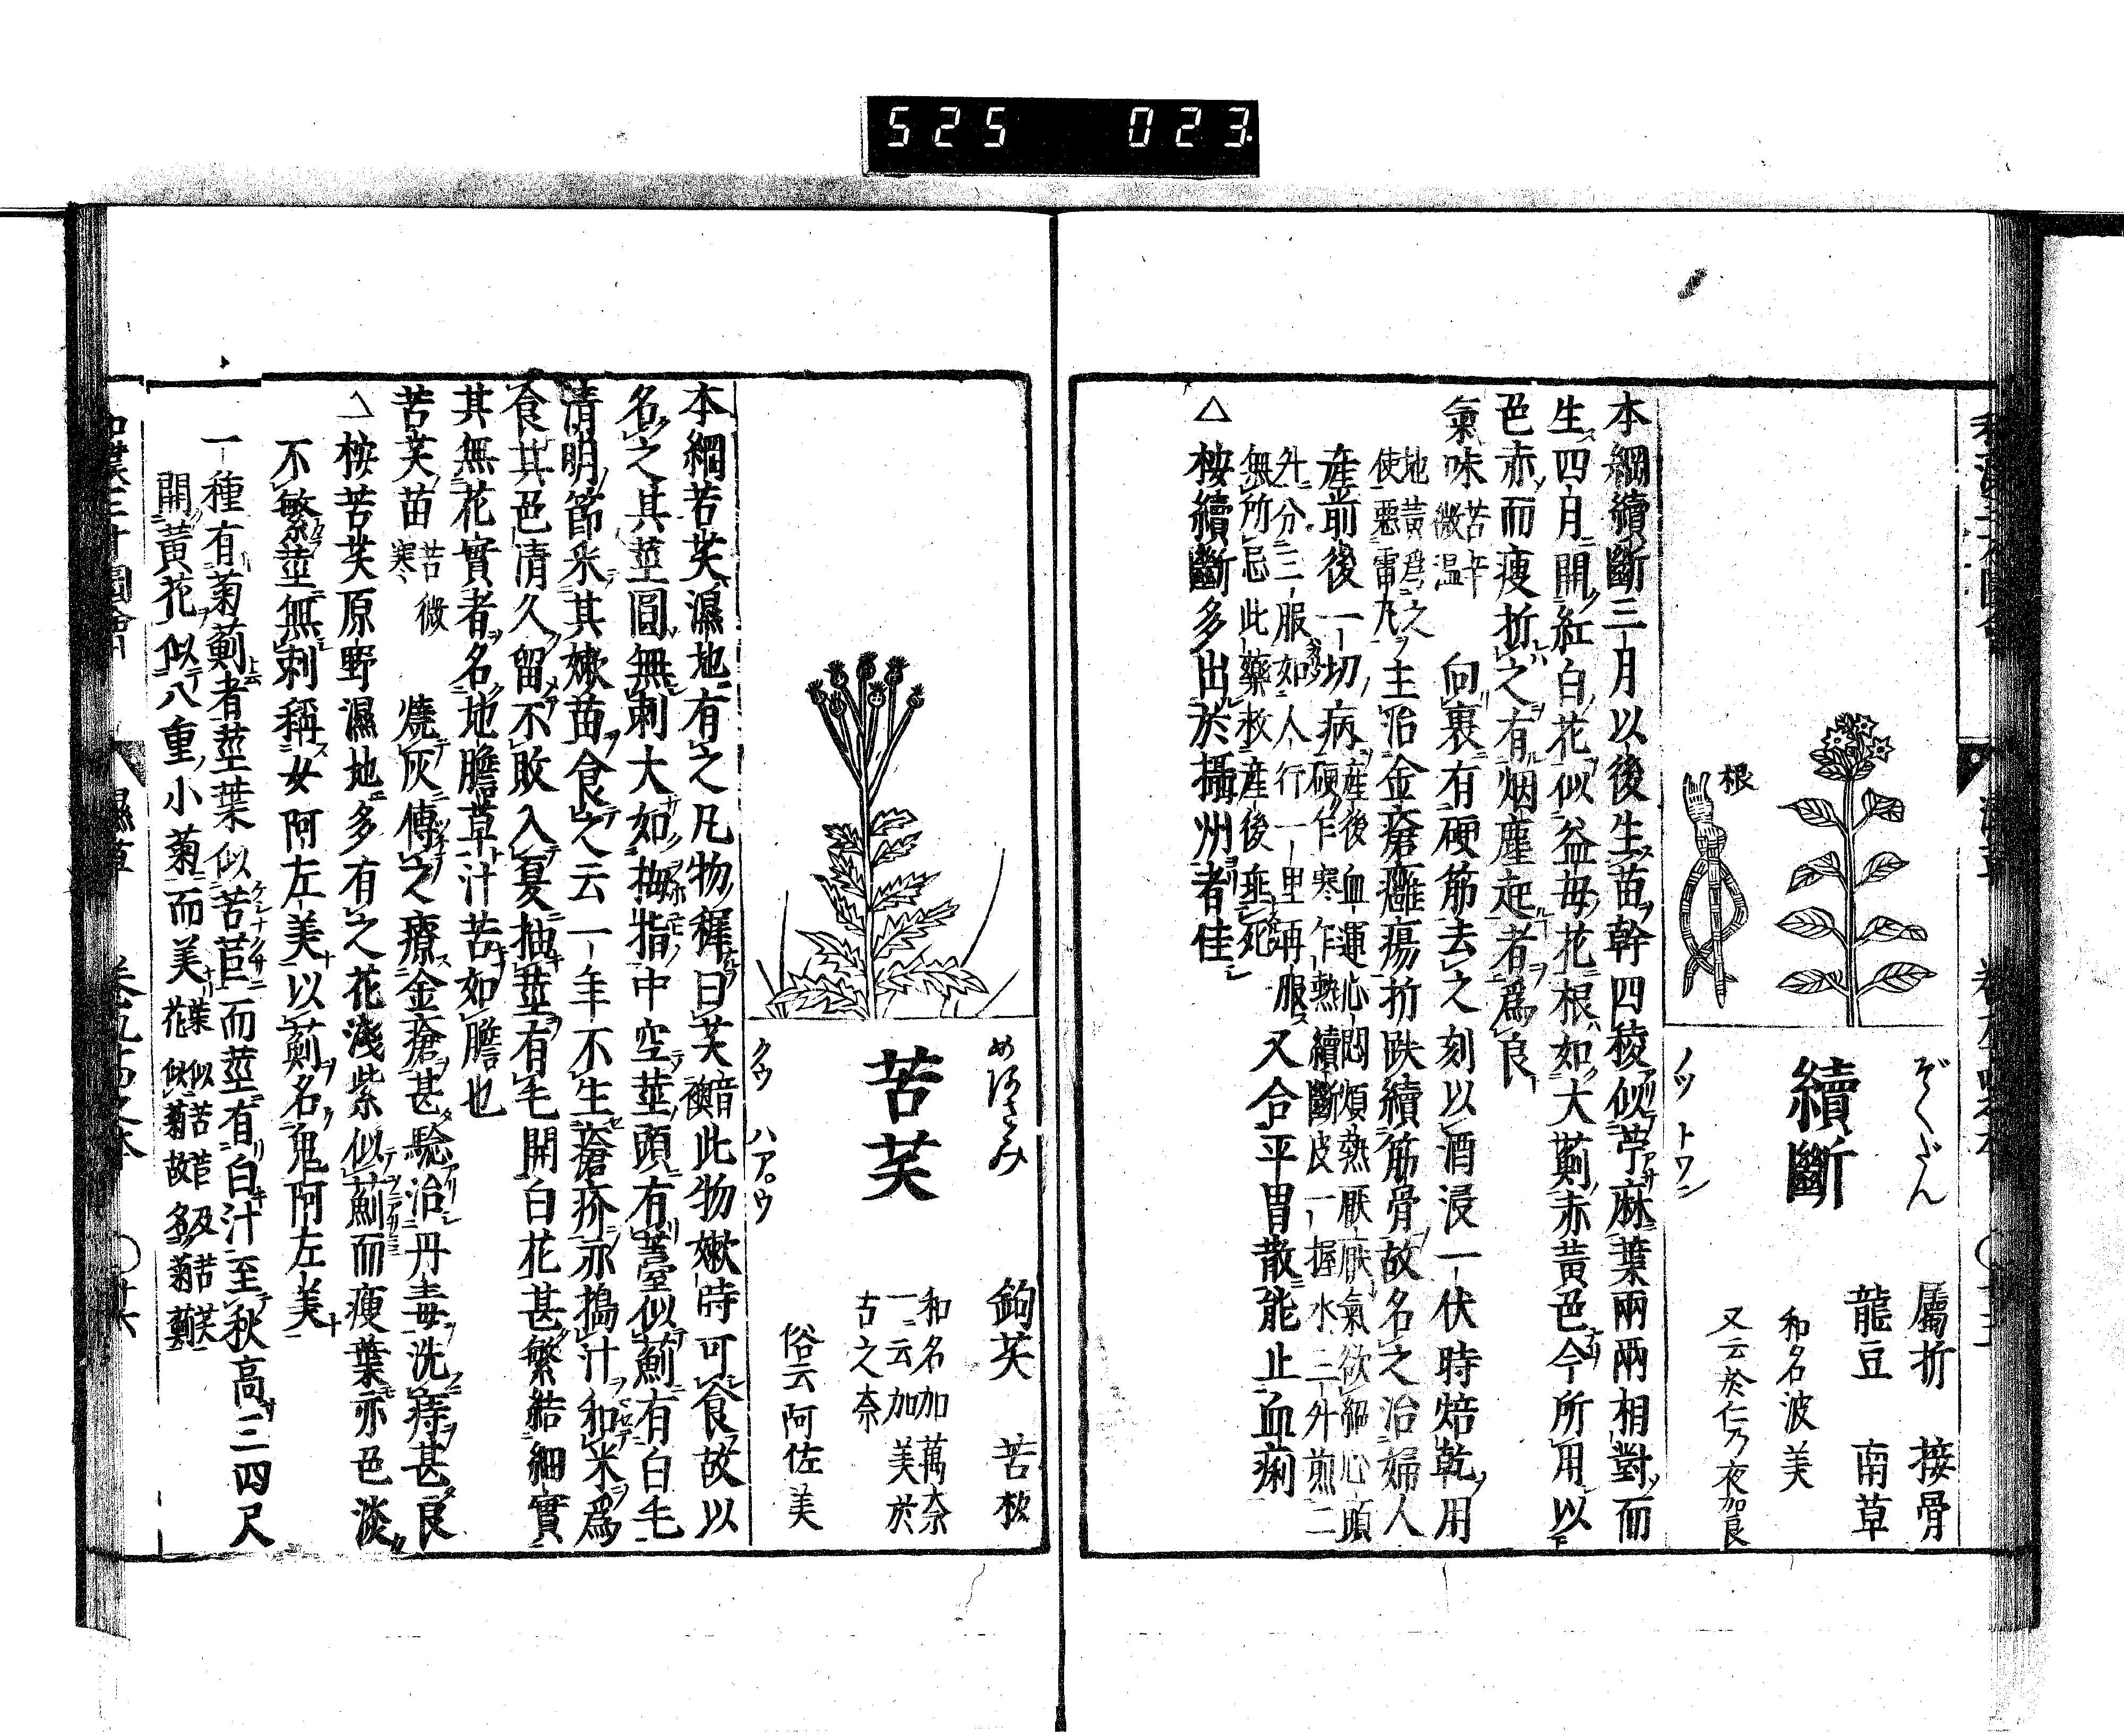 525 023
ぞくだん
續斷
ソツ トワン
屬折 接骨
龍豆 南草
和名波美
又云於仁乃夜加良
根
本綱續斷三月以後生苗幹四稜似苧麻葉兩兩相對而
生四月開紅白花似益母花根如大薊赤黃色今所用以
色赤而瘦折之有烟塵起者爲良
氣味 苦辛微温 向裏有硬筋去之剉以酒浸一伏時焙乾用
地黃爲之使惡雷丸 主治金瘡癰瘍折跌續筋骨故名之治婦人
産前後一切病 産後血運心悶煩熱厥厥氣欲絕心頭
硬乍寒乍熱續斷皮一握水三升煎二
升分三服如人行一里再服
無所忌此藥救産後垂死 又合平胃散能止血痢
△按續斷多出於攝州者佳
めあざみ
苦芺
クウ ハアウ
鉤芺 苦板
和名加萬奈
一云加美於
古之奈
俗云阿佐美
本綱苦芺濕地有之凡物穉曰芺 音襖 此物嫩時可食故以
名之其莖圓無刺大如拇指中空莖頭有薹似薊有白毛
清明節采其嫩苗食之云一年不生瘡疥亦搗汁和米爲
食其色清久留不敗入夏抽莖有毛開白花甚繁結細實
其無花實者名地膽草汁苦如膽也
苦芺苗 苦微寒 燒灰傅之療金瘡甚驗治丹毒洗痔甚良
△按苦芺原野濕地多有之花淺紫似薊而瘦葉亦色淡
不繁莖無刺稱女阿左美以薊名鬼阿左美
一種有菊薊者莖葉似苦苣而莖有白汁至秋高三四尺
開黃花似八重小菊而美 葉似苦苣及苦芺
花似菊故名菊薊
濕草